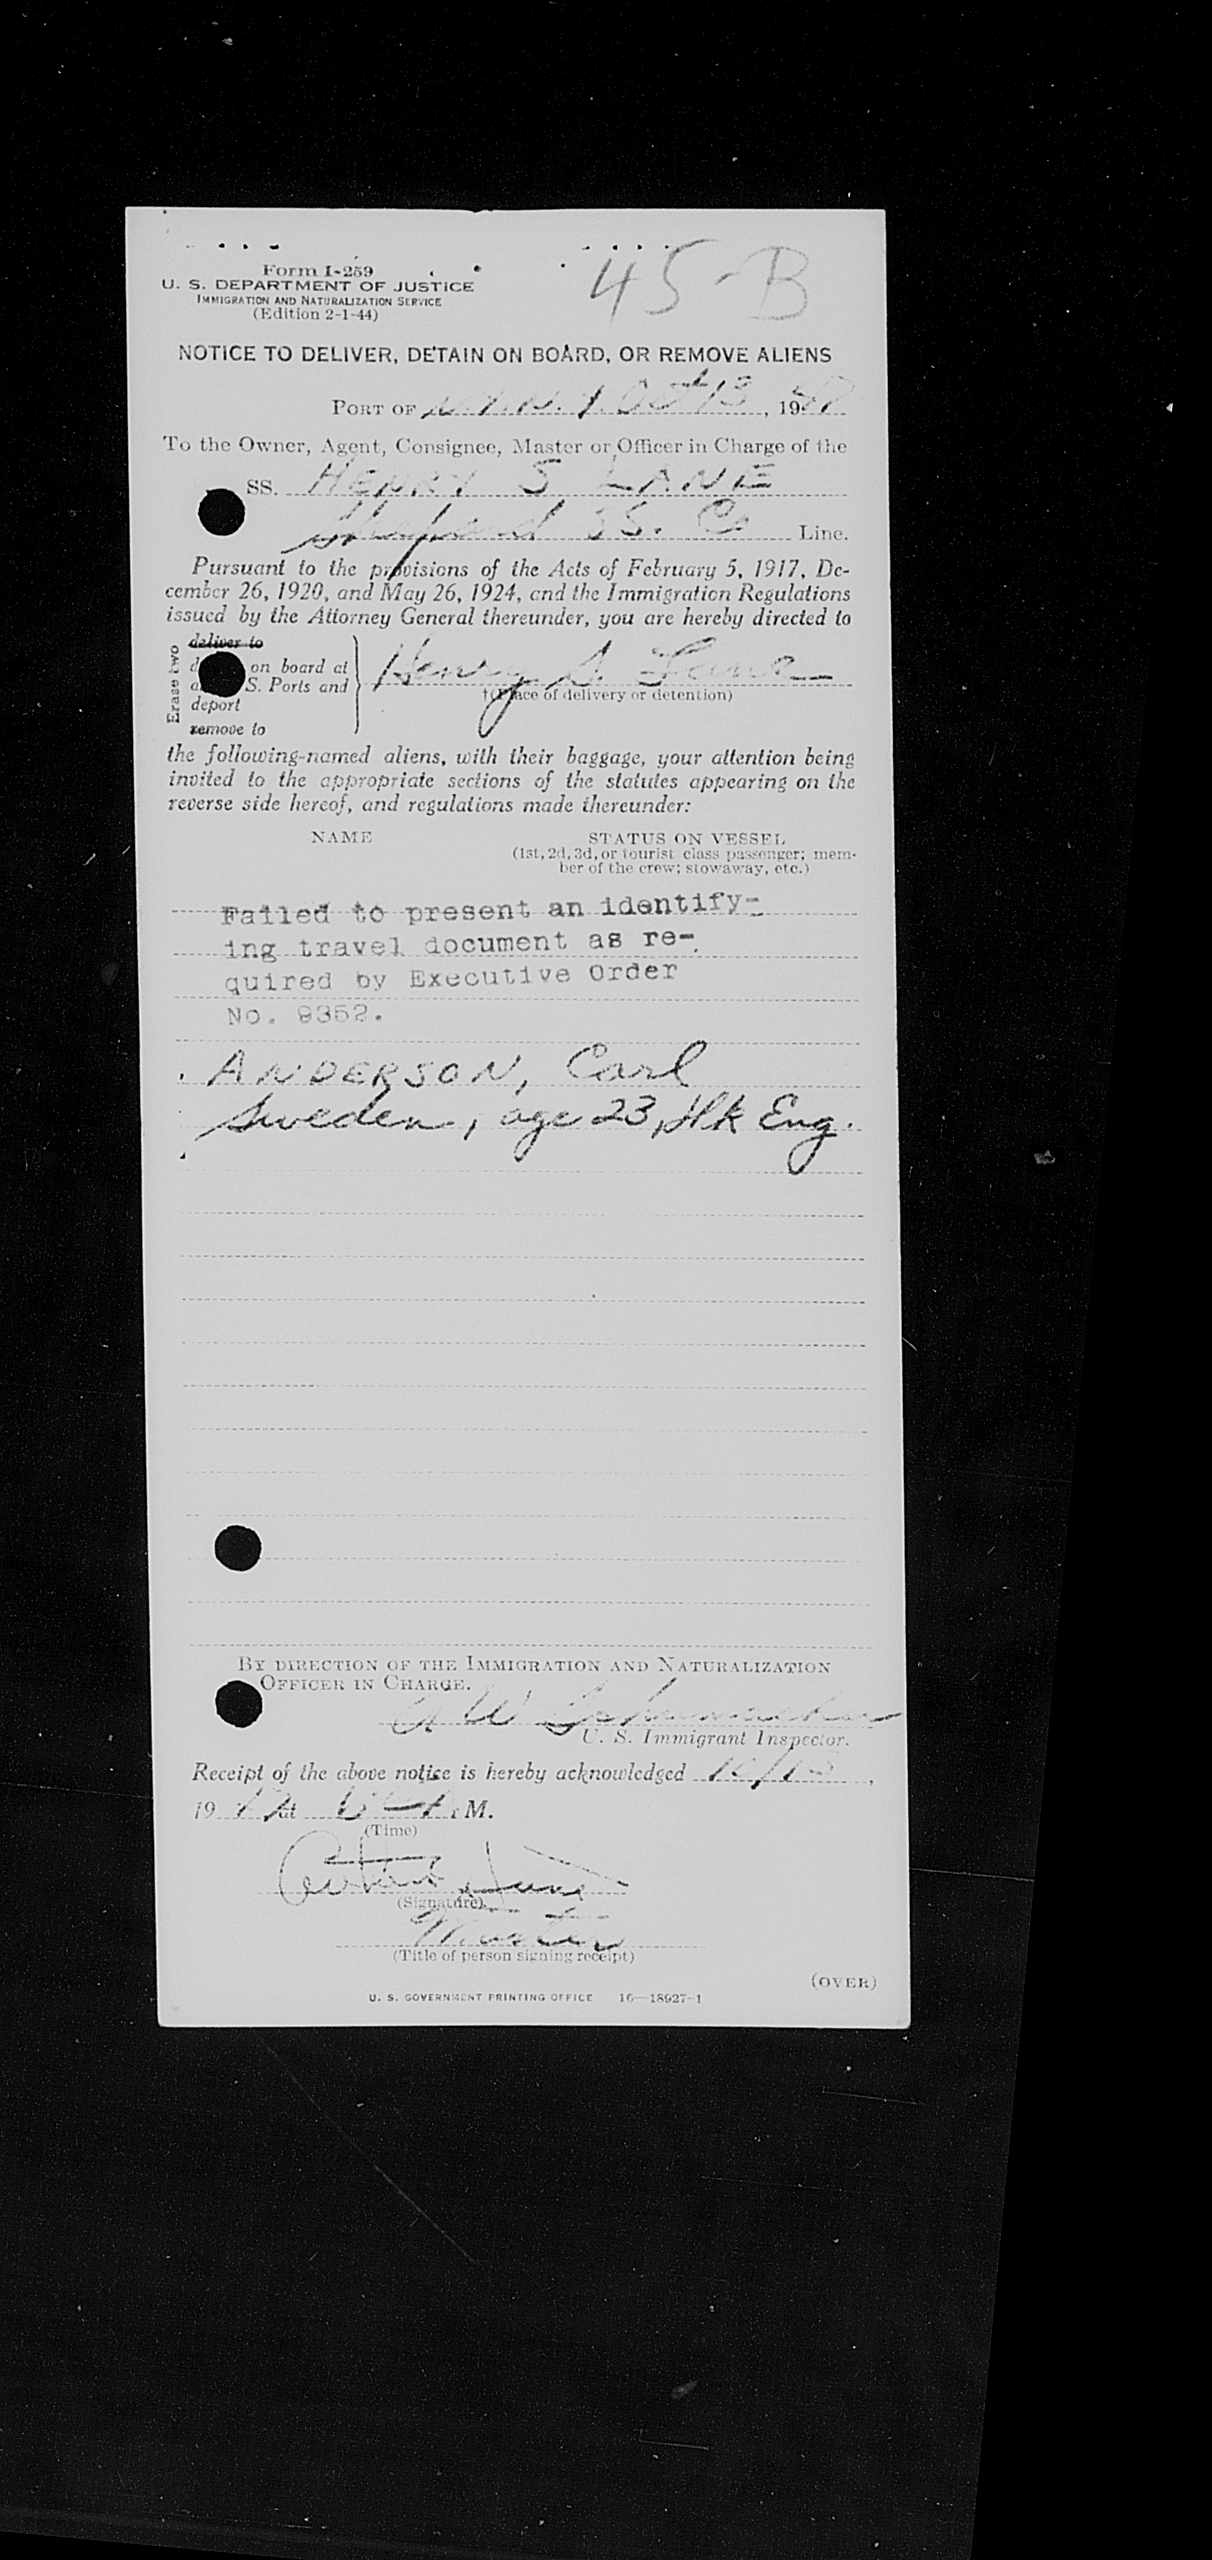 45-B
Form I-259
U. S. DEPARTMENT OF JUSTICE
IMMIGRATION AND NATURALIZATION SERVICE
(Edition 2-1-44)
NOTICE TO DELIVER, DETAIN ON BOARD, OR REMOVE ALIENS
PORT OF N.Y.N.Y. Oct 13, 1947
To the Owner, Agent, Consignee, Master or Officer in Charge of the
SS. HENRY S LANE
SS. Co Line.
Pursuant to the provisions of the Acts of February 5, 1917, De-
cember 26, 1920, and May 26, 1924, and the Immigration Regulations
issued by the Attorney General thereunder, you are hereby directed to
Erase two
deliver to
on board at
S. Ports and
deport
remove to
Henry S. Lane
†(Place of delivery or detention)
the following-named aliens, with their baggage, your attention being
invited to the appropriate sections of the statutes appearing on the
reverse side hereof, and regulations made thereunder:
NAME STATUS ON VESSEL
(1st, 2d, 3d, or tourist class passenger; mem-
ber of the crew; stowaway, etc.)
Failed to present an identify-
ing travel document as re-
quired by Executive Order
No. 9352.
ANDERSON, Carl
Sweden, age 23, Eng.
BY DIRECTION OF THE IMMIGRATION AND NATURALIZATION
OFFICER IN CHARGE.
W
U. S. Immigrant Inspector.
Receipt of the above notice is hereby acknowledged 10/13,
1947 at M.
(Time)
(Signature)
Master
(Title of person signing receipt)
(OVER)
U. S. GOVERNMENT PRINTING OFFICE 16—18927-1